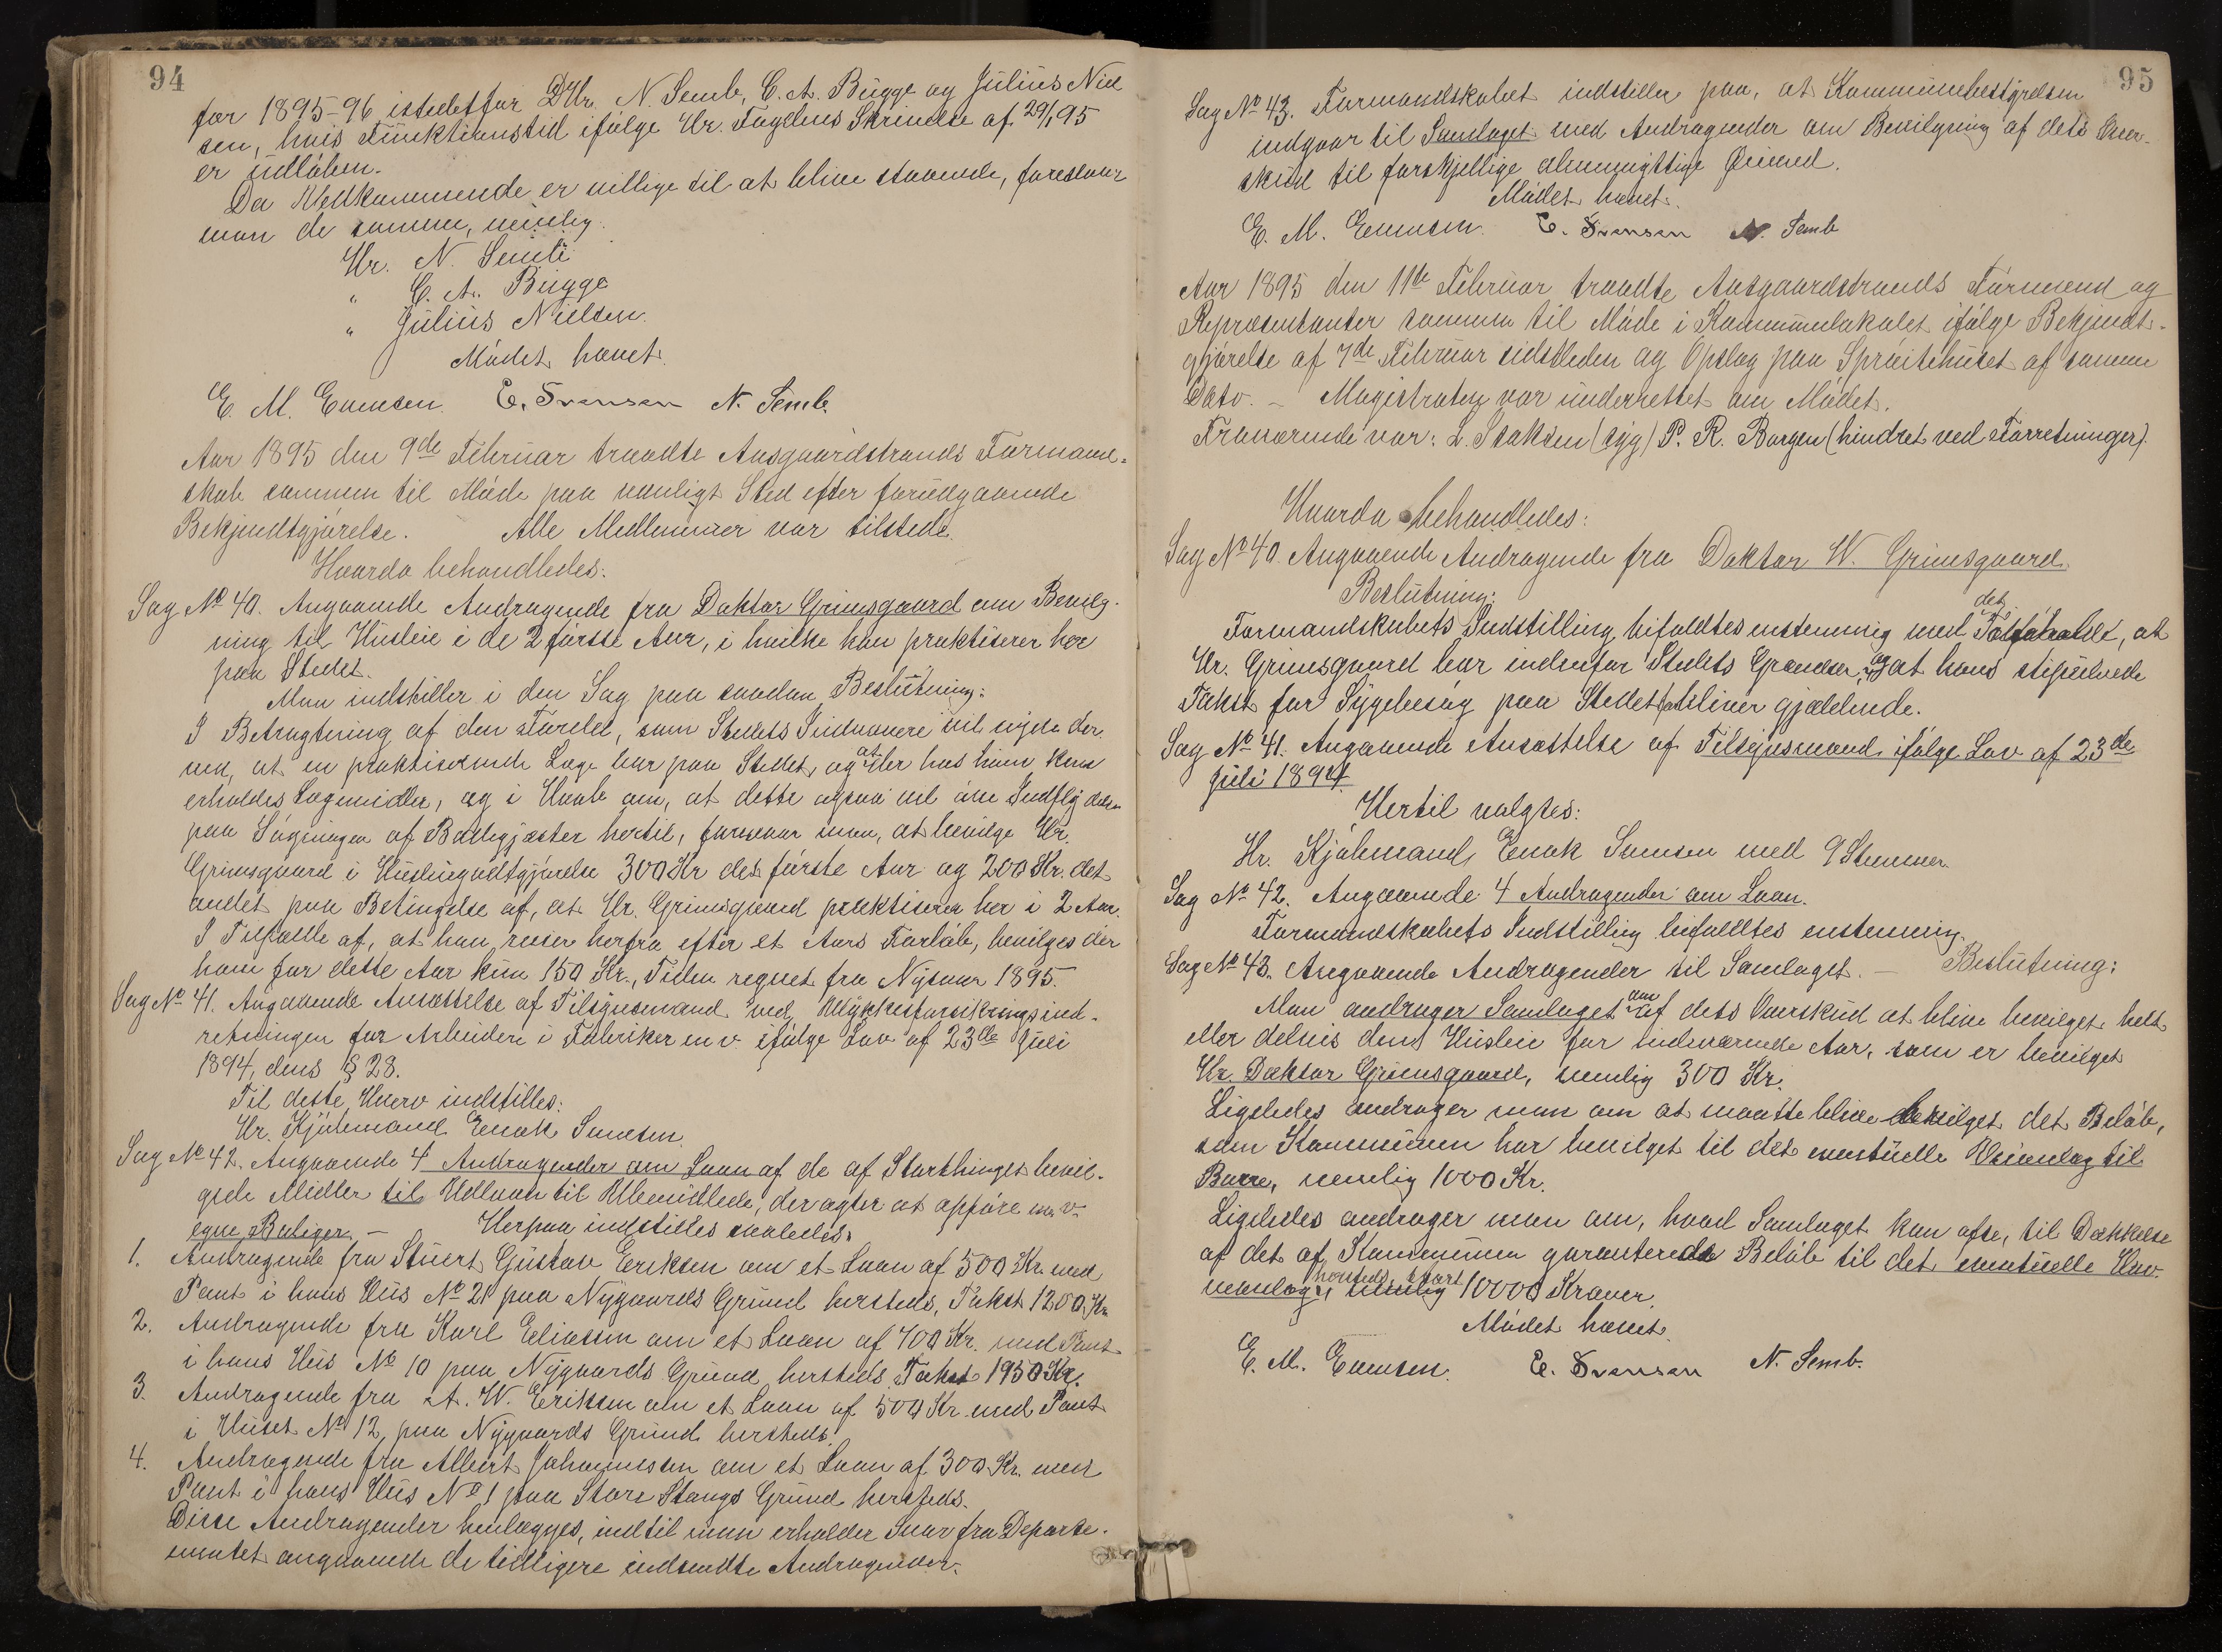 94
for 1895-96 istedetfor DHr. N. Semb, C. A. Bugge og Julius Niel
sen, hvis Funktionstid ifølge Hr. Fogdens Skrivelse af 29/1 95
er udløben.
Da Vedkommende er villige til at blive staaende, foreslaar
man de samme, nemlig:
Hr. N. Semb
" C. A. Bugge
" Julius Nielsen.
Mødet hævet.
E. M. Evensen. E. Svensen N. Semb.
Aar 1895 den 9de Februar traadte Aasgaardstrands Formand-
skab sammen til Møde paa vanligt Sted efter forudgaaende
Bekjendtgjørelse. Alle Medlemmer var tilstede.
Hvorda behandledes:
Sag No 40. Angaaende Andragende fra Doktor Grimsgaard om Bevilg-
ning til Husleie i de 2 første Aar, i hvilke han praktiserer her
paa Stedet.
Man indstiller i den Sag paa saadan Beslutning:
I Betragtning af den Fordel, som Stedets Indvaanere vil nyde der-
ved, at en praktiserende Læge bor paa Stedet, og at der hos ham kan
erholdes Lægemidler, og i Haab om, at dette ogsaa vil øve Indflydelse
paa Søgningen af Badegjæster hertil, foreslaar man, at bevilge Hr.
Grimsgaard i Huslieigodtgjørelse 300 Kr det første Aar og 200 Kr. det
andet paa Betingelse af, at Hr. Grimsgaard praktiserer her i 2 Aar.
I Tilfælde af, at han reiser herfra efter et Aars Forløb, bevilges der
ham for dette Aar kun 150 Kr., Tiden regnet fra Nytaar 1895.
Sag No 41. Angaaende Ansættelse af Tilsynsmand ved Ulykkesforsikringsind-
retningen for Arbeidere i Fabriker m v. ifølge Lov af 23de Juli
1894, dens § 28.
Til dette Hverv indstilles:
Hr. Kjøbmand Enok Svensen.
Sag No 42. Angaaende 4 Andragender om Laan af de af Storthinget bevil-
gede Midler til Udlaan til Ubemidlede, der agter at opføre m. v.
egne Boliger. – Herpaa indstilles saaledes:
1. Andragende fra Stuert Gustav Eriksen om et Laan af 500 Kr. med
Pant i hans Hus No 21 paa Nygaards Grund hersteds, Takst 1200 Kr.
2. Andragende fra Karl Eliassen om et Laan af 400 Kr. med Pant
i hans Hus No 10 paa Nygaards Grund hersteds, Takst 1950 Kr.
3. Andragende fra A. W. Eriksen om et Laan af 500 Kr. med Pant
i Huset No 12 paa Nygaards Grund hersteds.
4. Andragende fra Albert Johannessen om et Laan af 300 Kr. med
Pant i hans Hus No 1 paa Store Stangs Grund hersteds.
Disse Andragender henlægges, indtil man erholder Svar fra Departe-
mentet angaaende de tidligere indsendte Andragender.
95
Sag No 43. Formandskabet indstiller paa, at Kommunebestyrelsen
indgaar til Samlaget med Andragender om Bevilgning af dets Over-
skud til forskjellige almennyttige Øiemed.
Mødet hævet.
E. M. Evensen. E. Svensen N. Semb
Aar 1895 den 11te Februar traadte Aasgaardstrands Formænd og
Repræsentanter sammen til Møde i Kommunelokalet ifølge Bekjendt-
gjørelse af 7de Februar sidstleden og Opslag paa Sprøitehuset af samme
Dato. – Magistraten var underrettet om Mødet.
Fraværende var: L. Isaksen (syg) P. R. Borgen (hindret ved Forretninger).
Hvorda behandledes:
Sag No 40. Angaaende Andragende fra Doktor W. Grimsgaard.
Beslutning:
Formandskabets Indstilling bifaldtes enstemmig med det Forbehold, at
Hr. Grimsgaard bor indenfor Stedets Grændser, og at hans stipulerede
Takst for Sygebesøg paa Stedet bliver gjældende.
Sag No 41. Angaaende Ansættelse af Tilsynsmand ifølge Lov af 23de
Juli 1894.
Hertil valgtes:
Hr. Kjøbmand Enok Svensen med 9 Stemmer.
Sag No 42. Angaaende 4 Andragender om Laan.
Formandskabets Indstilling bifaldtes enstemmig.
Sag No 43. Angaaende Andragender til Samlaget. – Beslutning:
Man andrager Samlaget om af dets Overskud at blive bevilget helt
eller delvis den Husleie for indeværende Aar, som er bevilget
Hr. Doktor Grimsgaard, nemlig 300 Kr.
Ligeledes andrager man om at maatte blive bevilget det Beløb,
som Kommunen har bevilget til det eventuelle Veianlæg til
Borre, nemlig 1000 Kr.
Ligeledes andrager man om, hvad Samlaget kan afse, til Dækkelse
af det af Kommunen garanterede Beløb til det eventuelle Hav-
neanlæg hersteds, stort 10000 Kroner.
Mødet hævet.
E. M. Evensen. E. Svensen N. Semb.